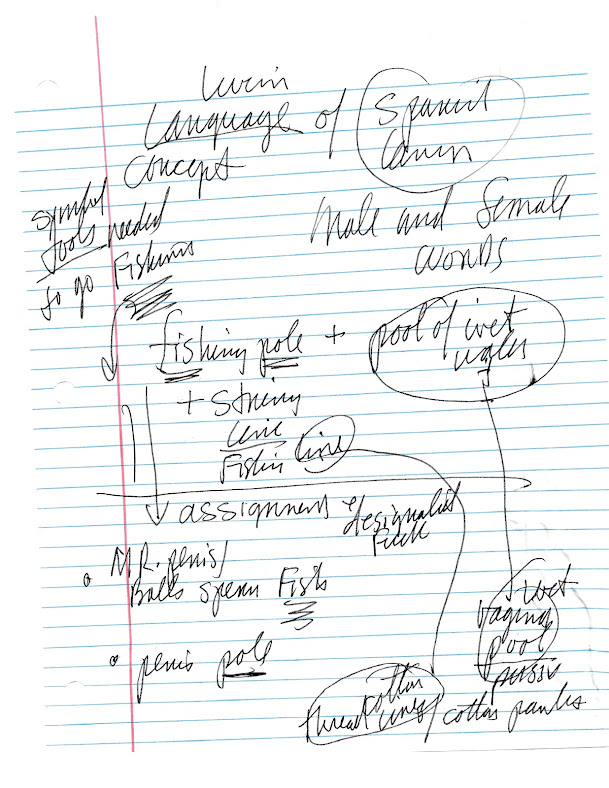 Language of Spanish
Concept
Symbol
tools needed
to go Fishing
male and female
words
fishing pole +
pool of wet
water
+ string
line
Fishin line
assignment +
designalist
Fuck
• MR. penis/
Balls sperm Fish
• penis pole
wet
vagina
pool
pussi
cotton
thread lines / cotton panties